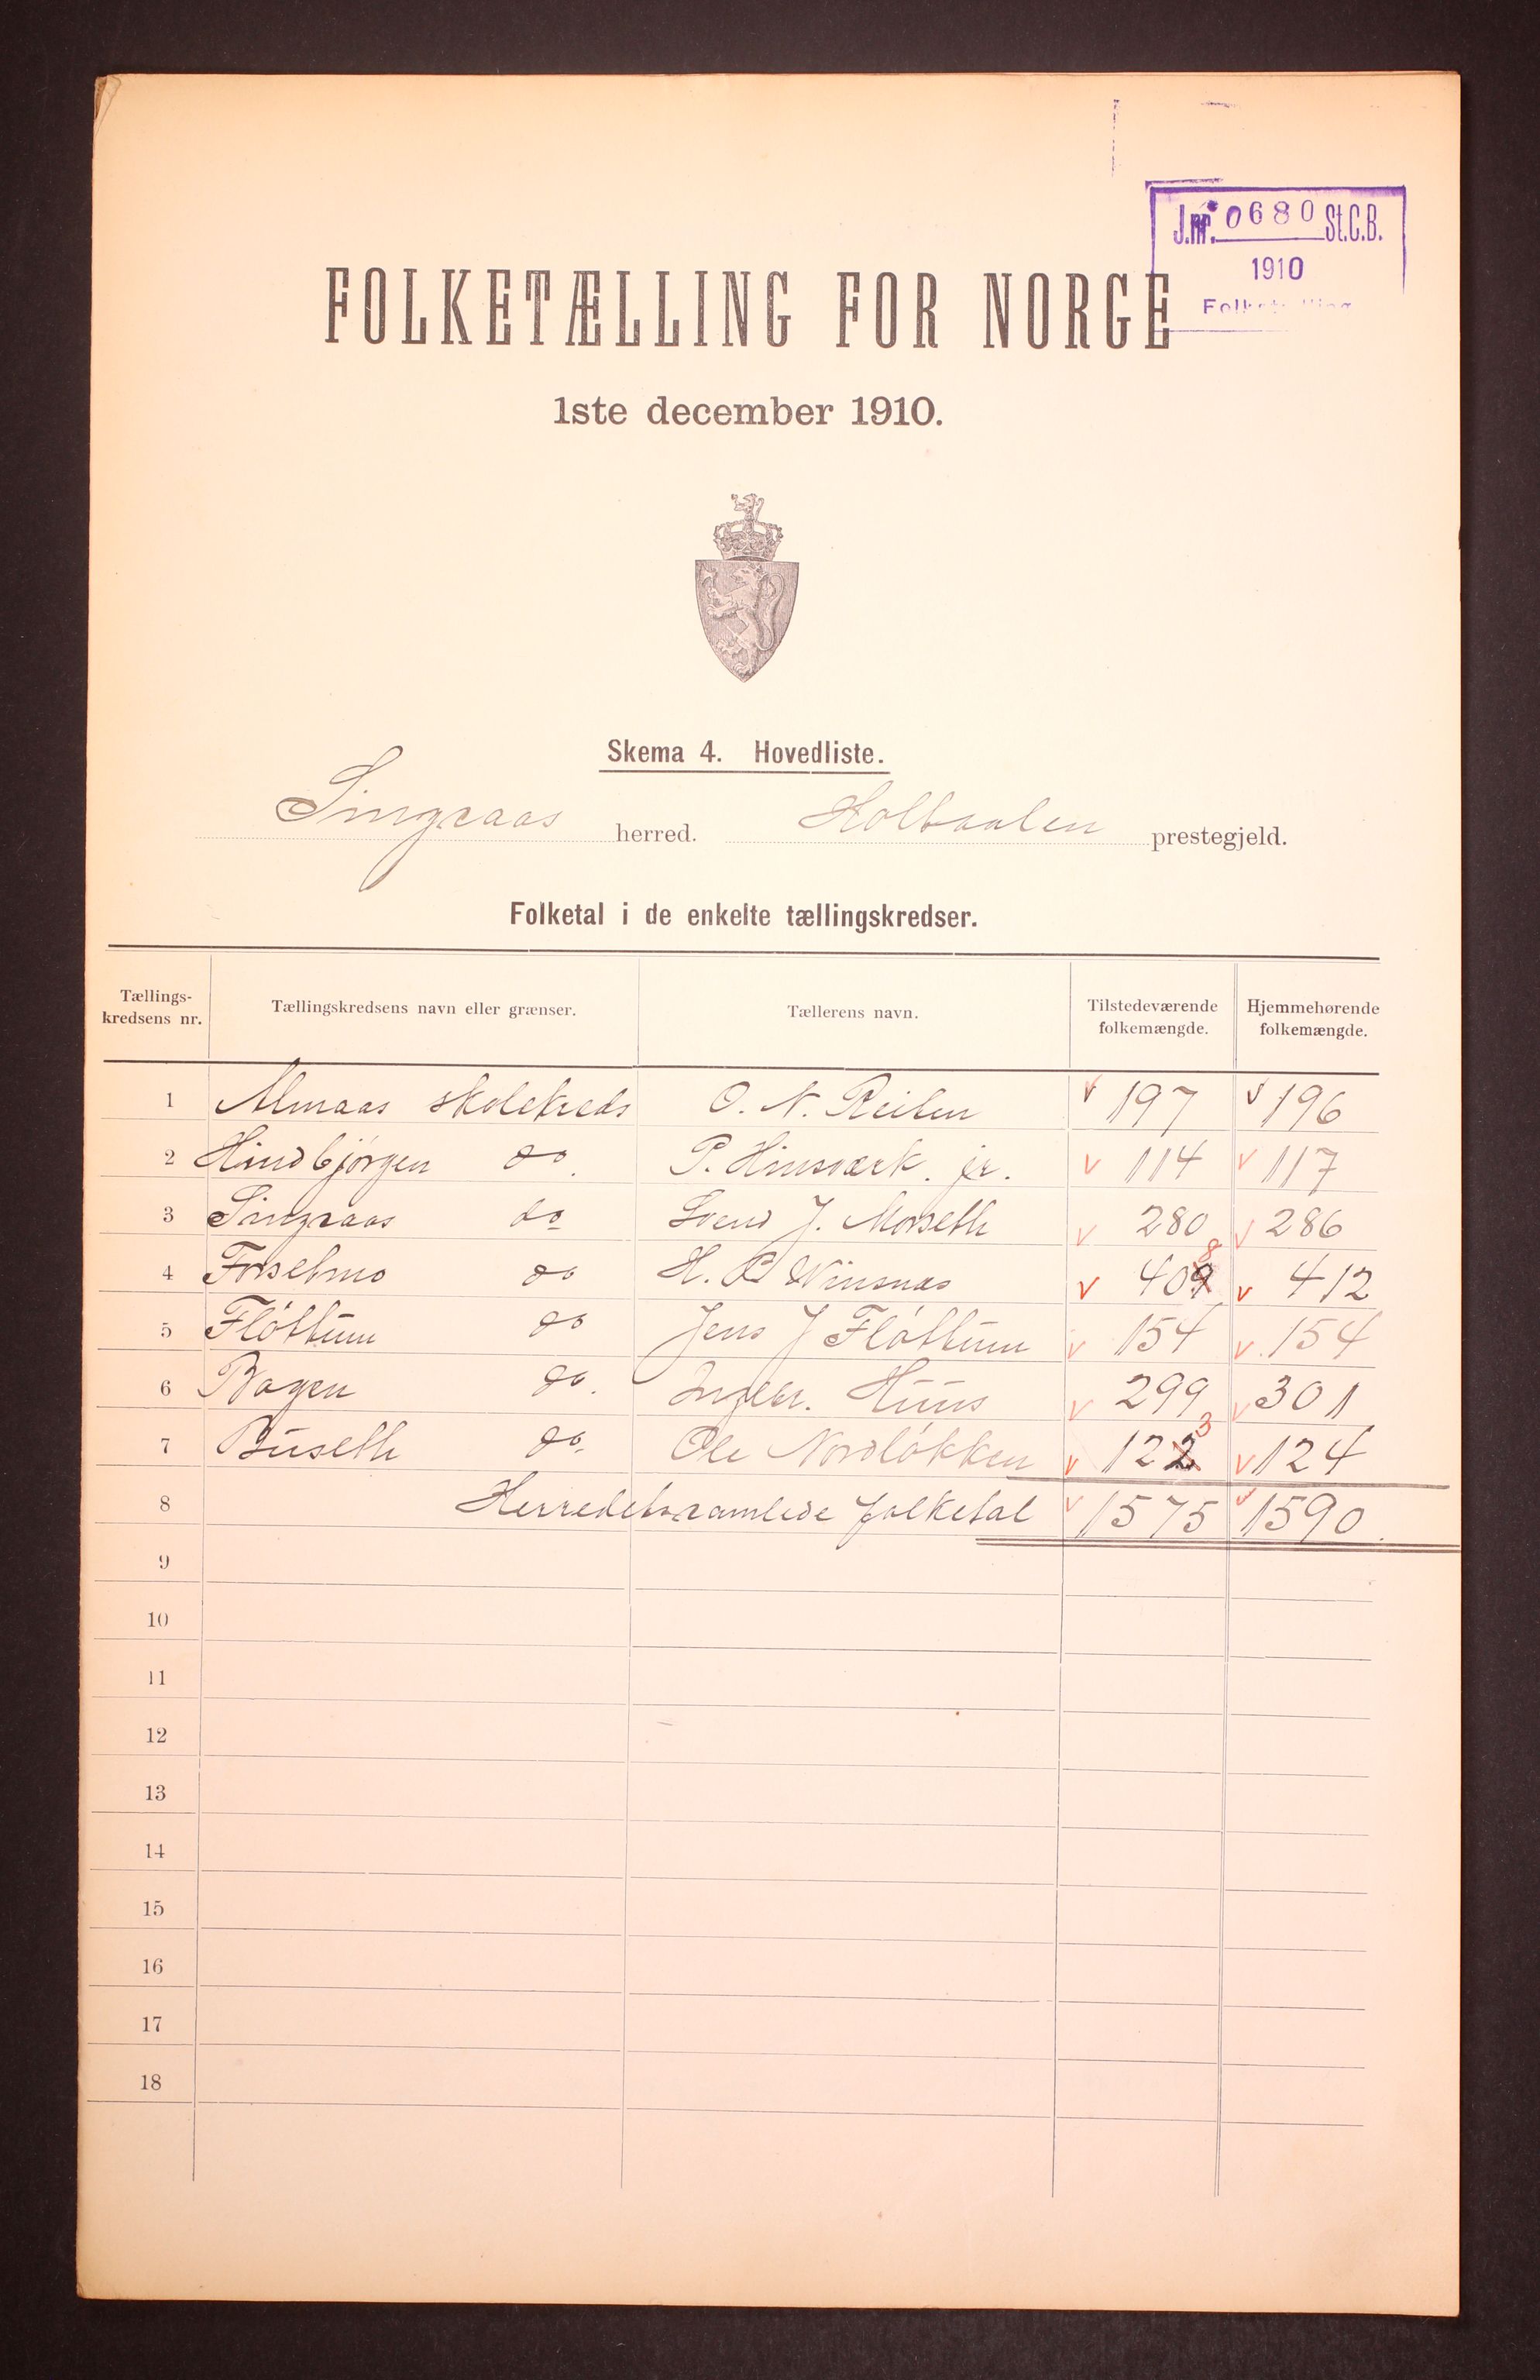 J.nr. 0680 St.C.B.
1910
FOLKETÆLLING FOR NORGE
1ste december 1910.
Skema 4. Hovedliste.
Singsaas herred. Holtaalen prestegjeld.
Folketal i de enkelte tællingskredser.
Tællings-kredsens nr. Tællingskredsens navn eller grænser. Tællerens navn. Tilstedeværende folkemængde. Hjemmehørende folkemængde.
1 Almaas skolekreds O. N. Reiten 197 196
2 Hindbjørgen do. P. Hinsværk jr. 114 117
3 Singsaas do Svend J. Morseth 280 286
4 Forsetmo do H. P. Winsnas 409 8 412
5 Fløttum do Jens J Fløttum 154 154
6 Bogen do. Ingebr. Huus 299 301
7 Buseth do. Ole Nordløkken 122 3 124
8 Herredets samlede folketal 1575 1590.
9
10
11
12
13
14
15
16
17
18